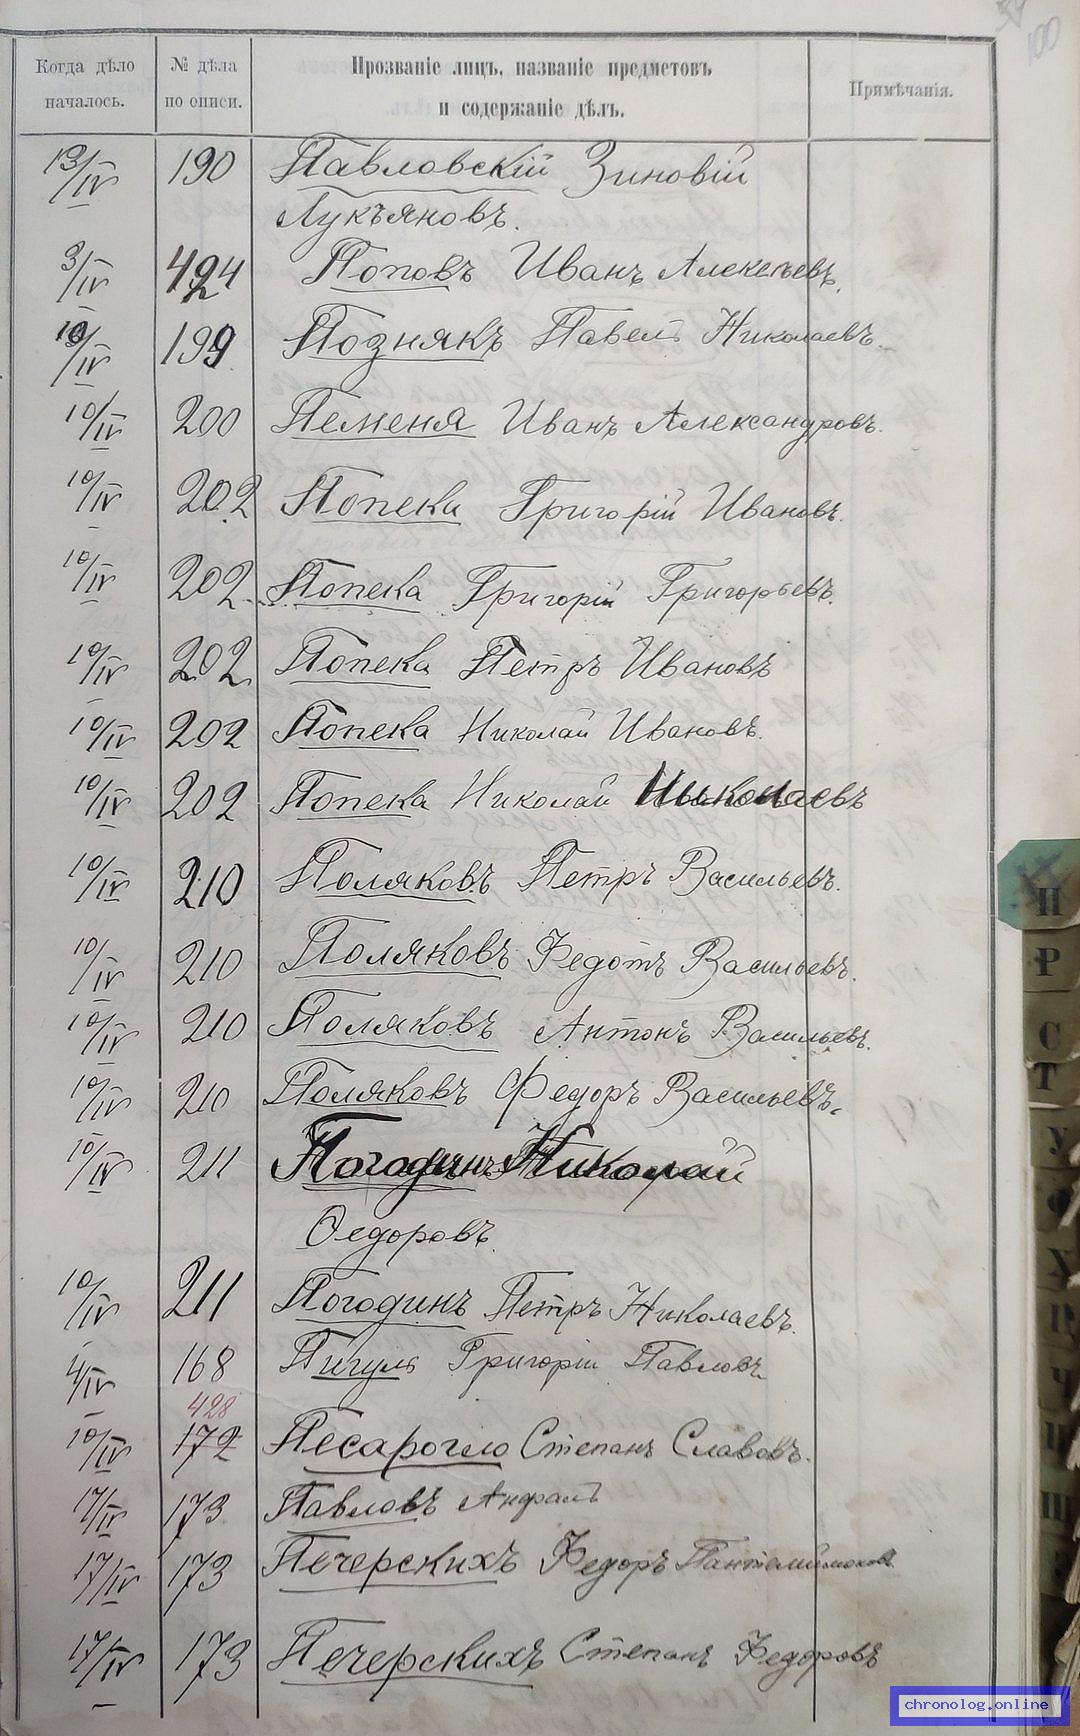 100
Когда дѣло началось.
№ дѣла по описи.
Прозваніе лицъ, названіе предметовъ и содержаніе дѣлъ.
Примѣчанія.
13/IV 190 Павловскій Зиновій
Лукъяновъ.
3/IV 424 Поповъ Иванъ Алексѣевъ.
10/IV 199 Познякъ Павелъ Николаевъ.
10/IV 200 Пеменя Иванъ Александровъ.
10/IV 202 Попека Григорій Ивановъ.
10/IV 202 Попека Григорій Григорьевъ.
10/IV 202 Попека Петръ Ивановъ
10/IV 202 Попека Николай Ивановъ.
10/IV 202 Попека Николай Николаевъ
10/IV 210 Поляковъ Петръ Васильевъ.
10/IV 210 Поляковъ Федотъ Васильевъ.
10/IV 210 Поляковъ Антонъ Васильевъ.
10/IV 210 Поляковъ Федоръ Васильевъ.
10/IV 211 Погодинъ Николай
Ѳедоровъ.
10/IV 211 Погодинъ Петръ Николаевъ.
4/IV 168 Пигулъ Григорій Павловъ
428
10/IV 172 Песарогло Степанъ Славовъ.
17/IV 173 Павловъ
17/IV 173 Печерскихъ Федоръ
17/IV 173 Печерскихъ Степанъ Федоровъ
П
Р
С
Т
У
Ф
Х
Ц
Ч
Ш
chronolog.online